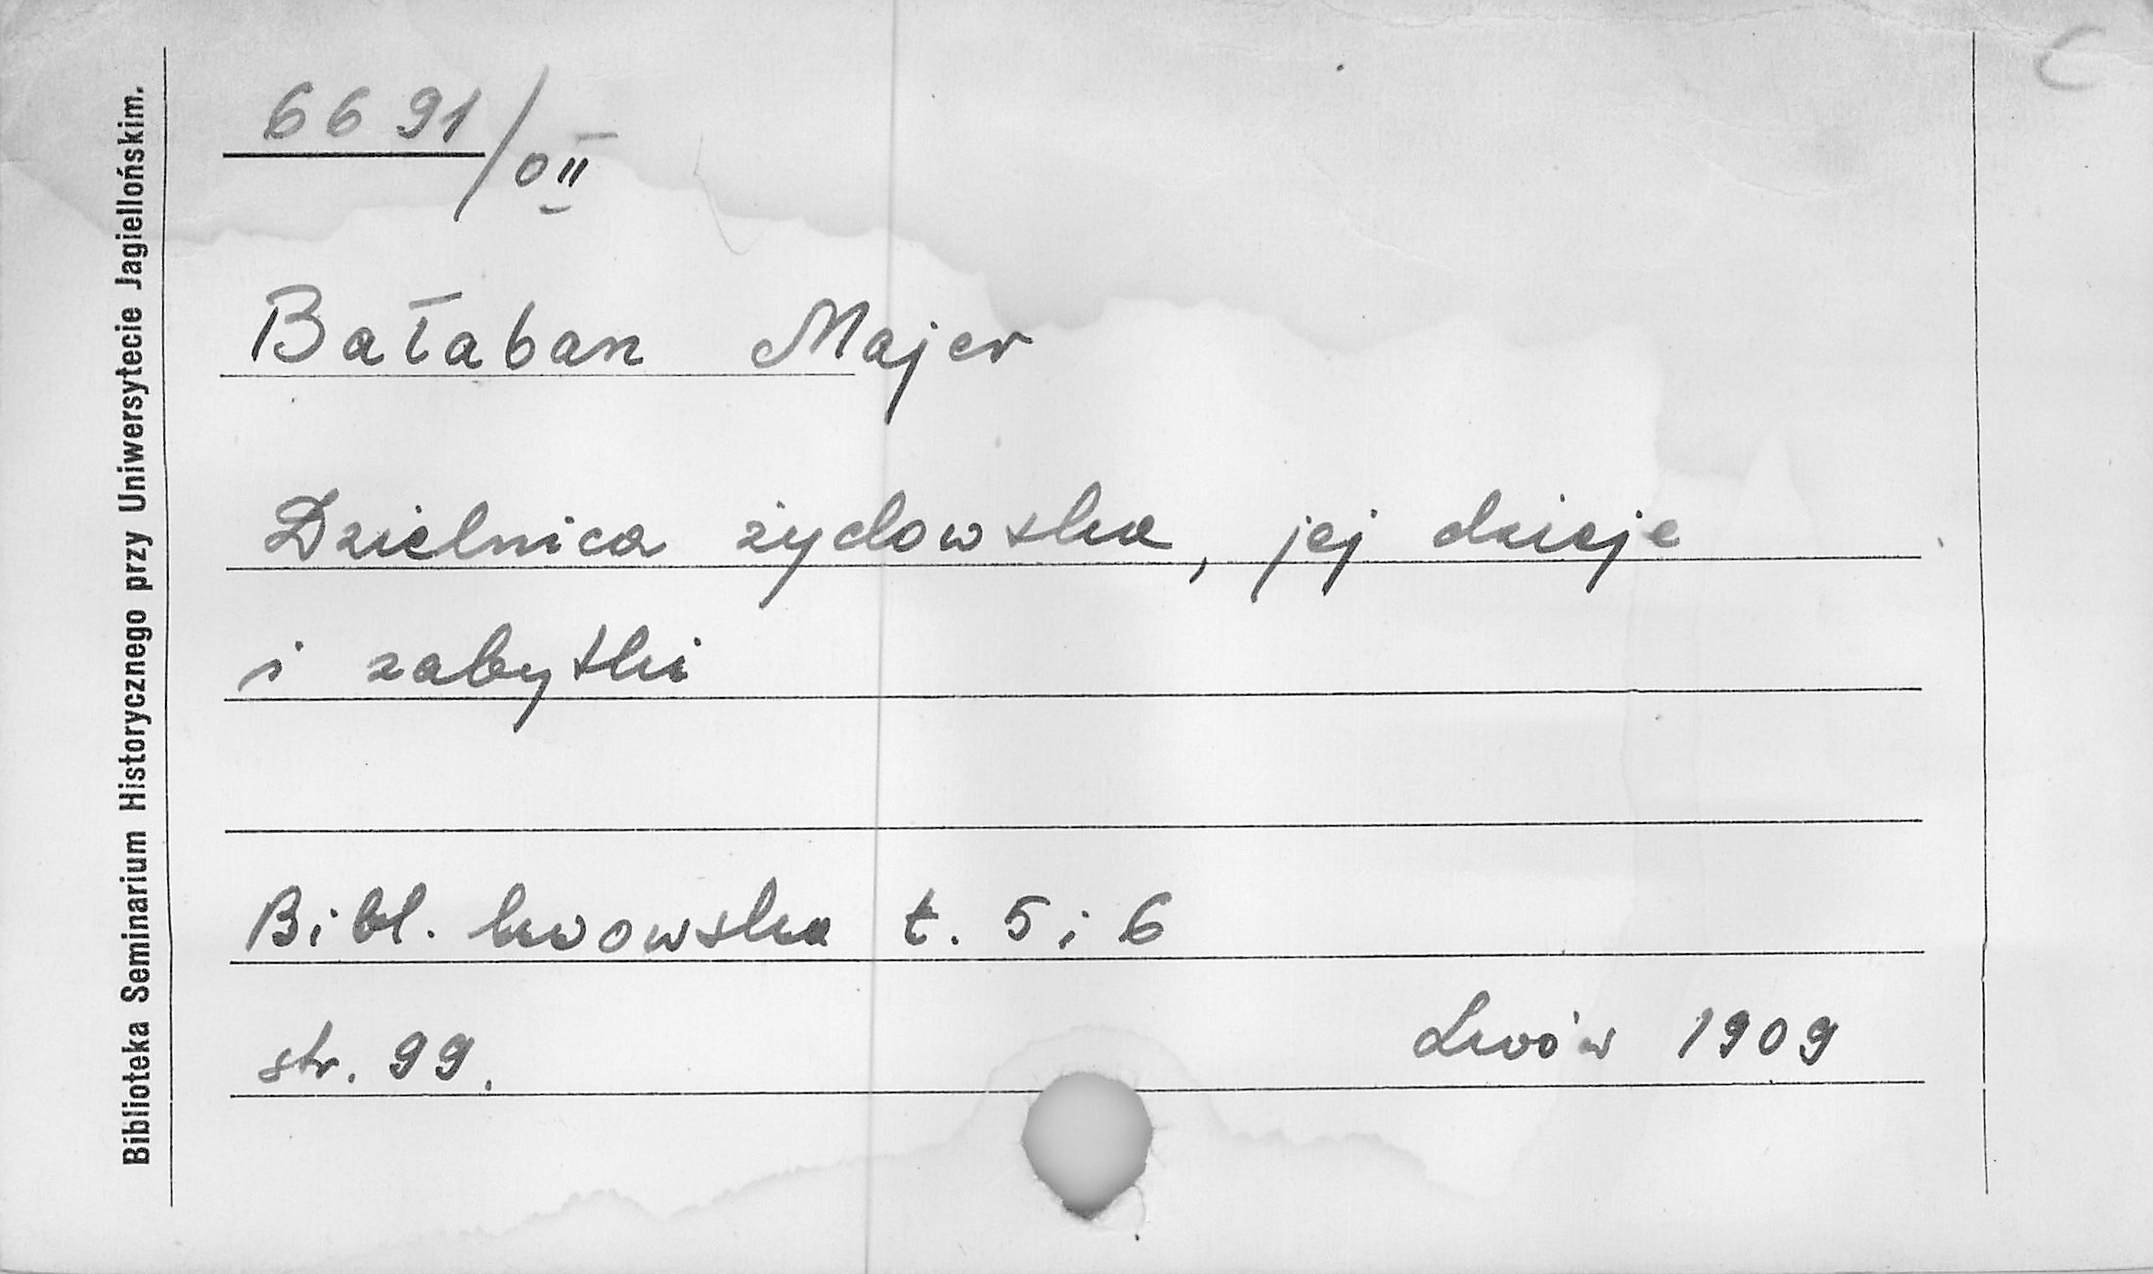 6691/0II
Bałaban Majer
Dzielnica żydowska, jej dzieje
i zabytki
Bibl. lwowska t. 5 i 6
Lwów 1909
str. 99.
Biblioteka Seminarium Historycznego przy Uniwersytecie Jagiellońskim.
C